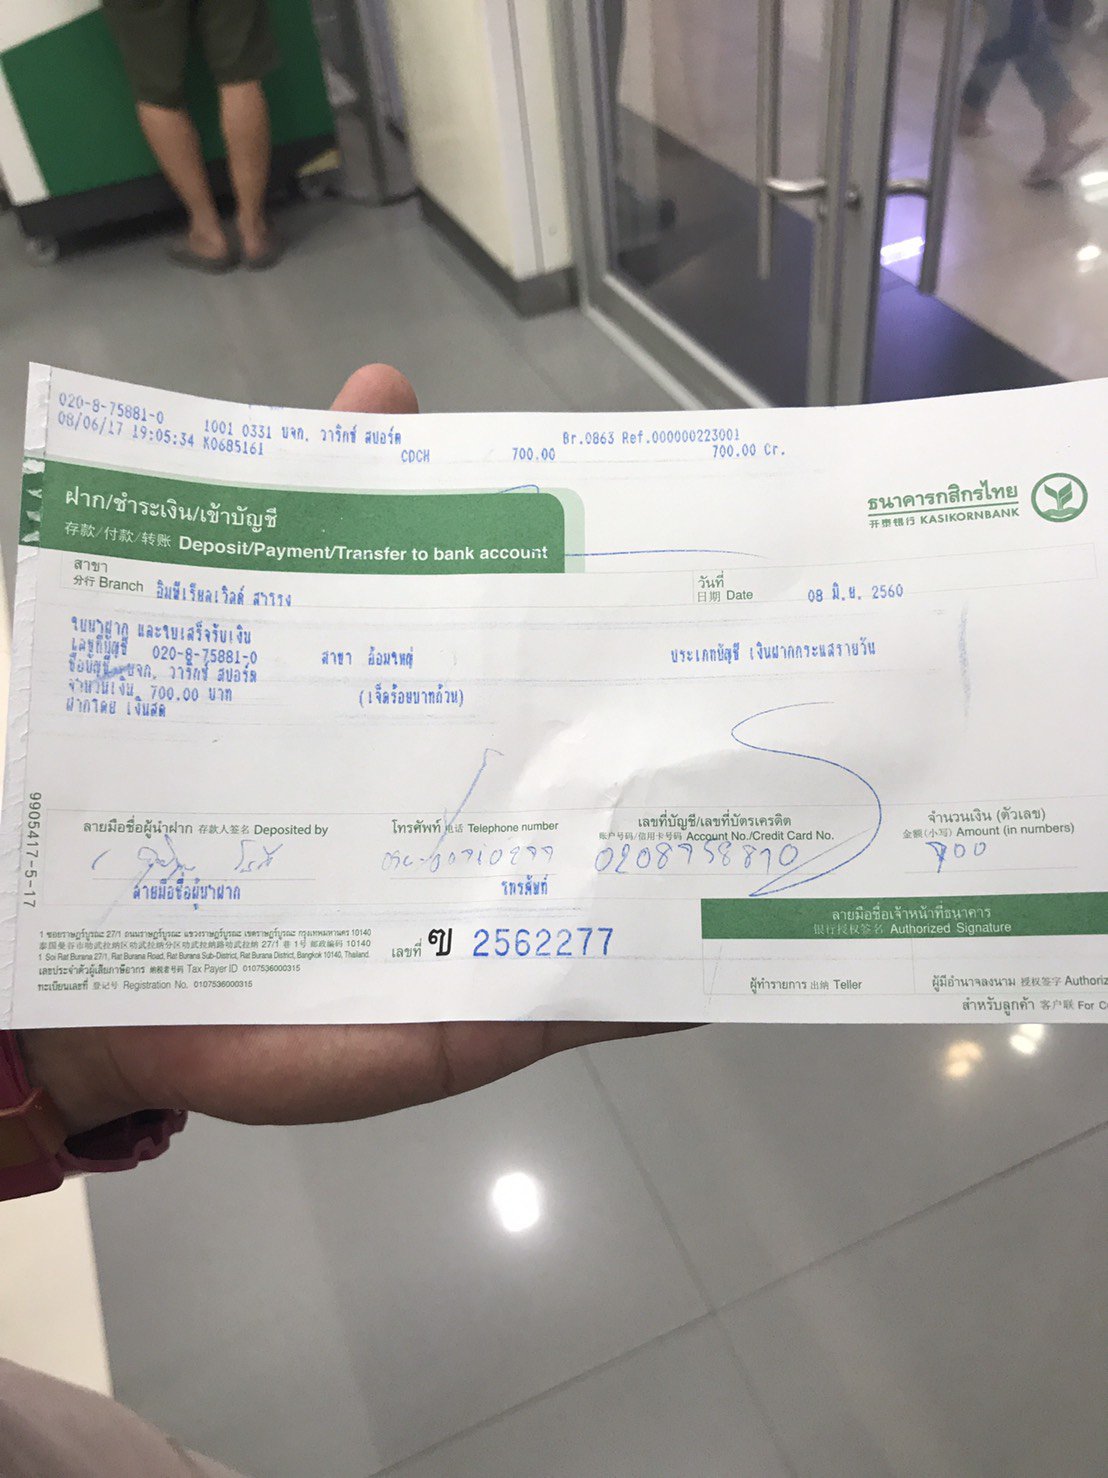 020-8-75881-0 1001 0331 บจก. วาริกซ์ สปอร์ต Br.0863 Ref.000000223001
08/06/17 19:05:34 K0685161 CDCH 700.00 700.00 Cr.
ฝาก/ชำระเงิน/เข้าบัญชี
存款/付款/转账 Deposit/Payment/Transfer to bank account
ธนาคารกสิกรไทย
开泰银行 KASIKORNBANK
สาขา
分行 Branch อิมพีเรียลเวิลด์ สำโรง
วันที่
日期 Date 08 มิ.ย. 2560
ใบนำฝาก และใบเสร็จรับเงิน
เลขที่บัญชี 020-8-75881-0 สาขา อ้อมใหญ่ ประเภทบัญชี เงินฝากกระแสรายวัน
ชื่อบัญชี บจก. วาริกซ์ สปอร์ต
จำนวนเงิน 700.00 บาท (เจ็ดร้อยบาทถ้วน)
ฝากโดย เงินสด
9905417-5-17
ลายมือชื่อผู้นำฝาก 存款人签名 Deposited by
โทรศัพท์ 电话 Telephone number
เลขที่บัญชี/เลขที่บัตรเครดิต
账户号码/信用卡号码 Account No./Credit Card No.
0208758810
จำนวนเงิน (ตัวเลข)
金额(小写) Amount (in numbers)
700
ลายมือชื่อผู้นำฝาก โทรศัพท์
1 ซอยราษฎร์บูรณะ 27/1 ถนนราษฎร์บูรณะ แขวงราษฎร์บูรณะ เขตราษฎร์บูรณะ กรุงเทพมหานคร 10140
泰国曼谷市叻武拉纳区叻武拉纳分区叻武拉纳路叻武拉纳 27/1 巷 1号 邮政编码 10140
1 Soi Rat Burana 27/1, Rat Burana Road, Rat Burana Sub-District, Rat Burana District, Bangkok 10140, Thailand.
เลขประจำตัวผู้เสียภาษีอากร 纳税者号码 Tax Payer ID 0107536000315
ทะเบียนเลขที่ 登记号 Registration No. 0107536000315
เลขที่ ฃ 2562277
ลายมือชื่อเจ้าหน้าที่ธนาคาร
银行授权签名 Authorized Signature
ผู้ทำรายการ 出纳 Teller
ผู้มีอำนาจลงนาม 授权签字 Authoriz
สำหรับลูกค้า 客户联 For C